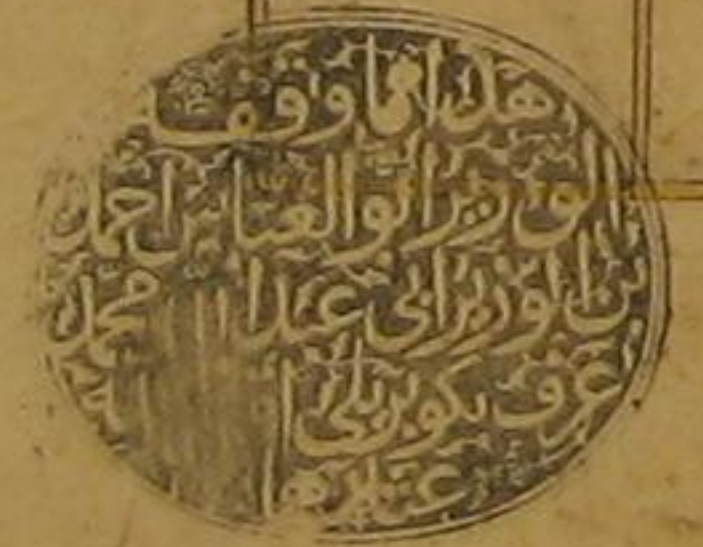 هذا ما وقفه
الوزير ابو العباس احمد
بن الوزير ابي عبد الله محمد
عرف بكوبريلي